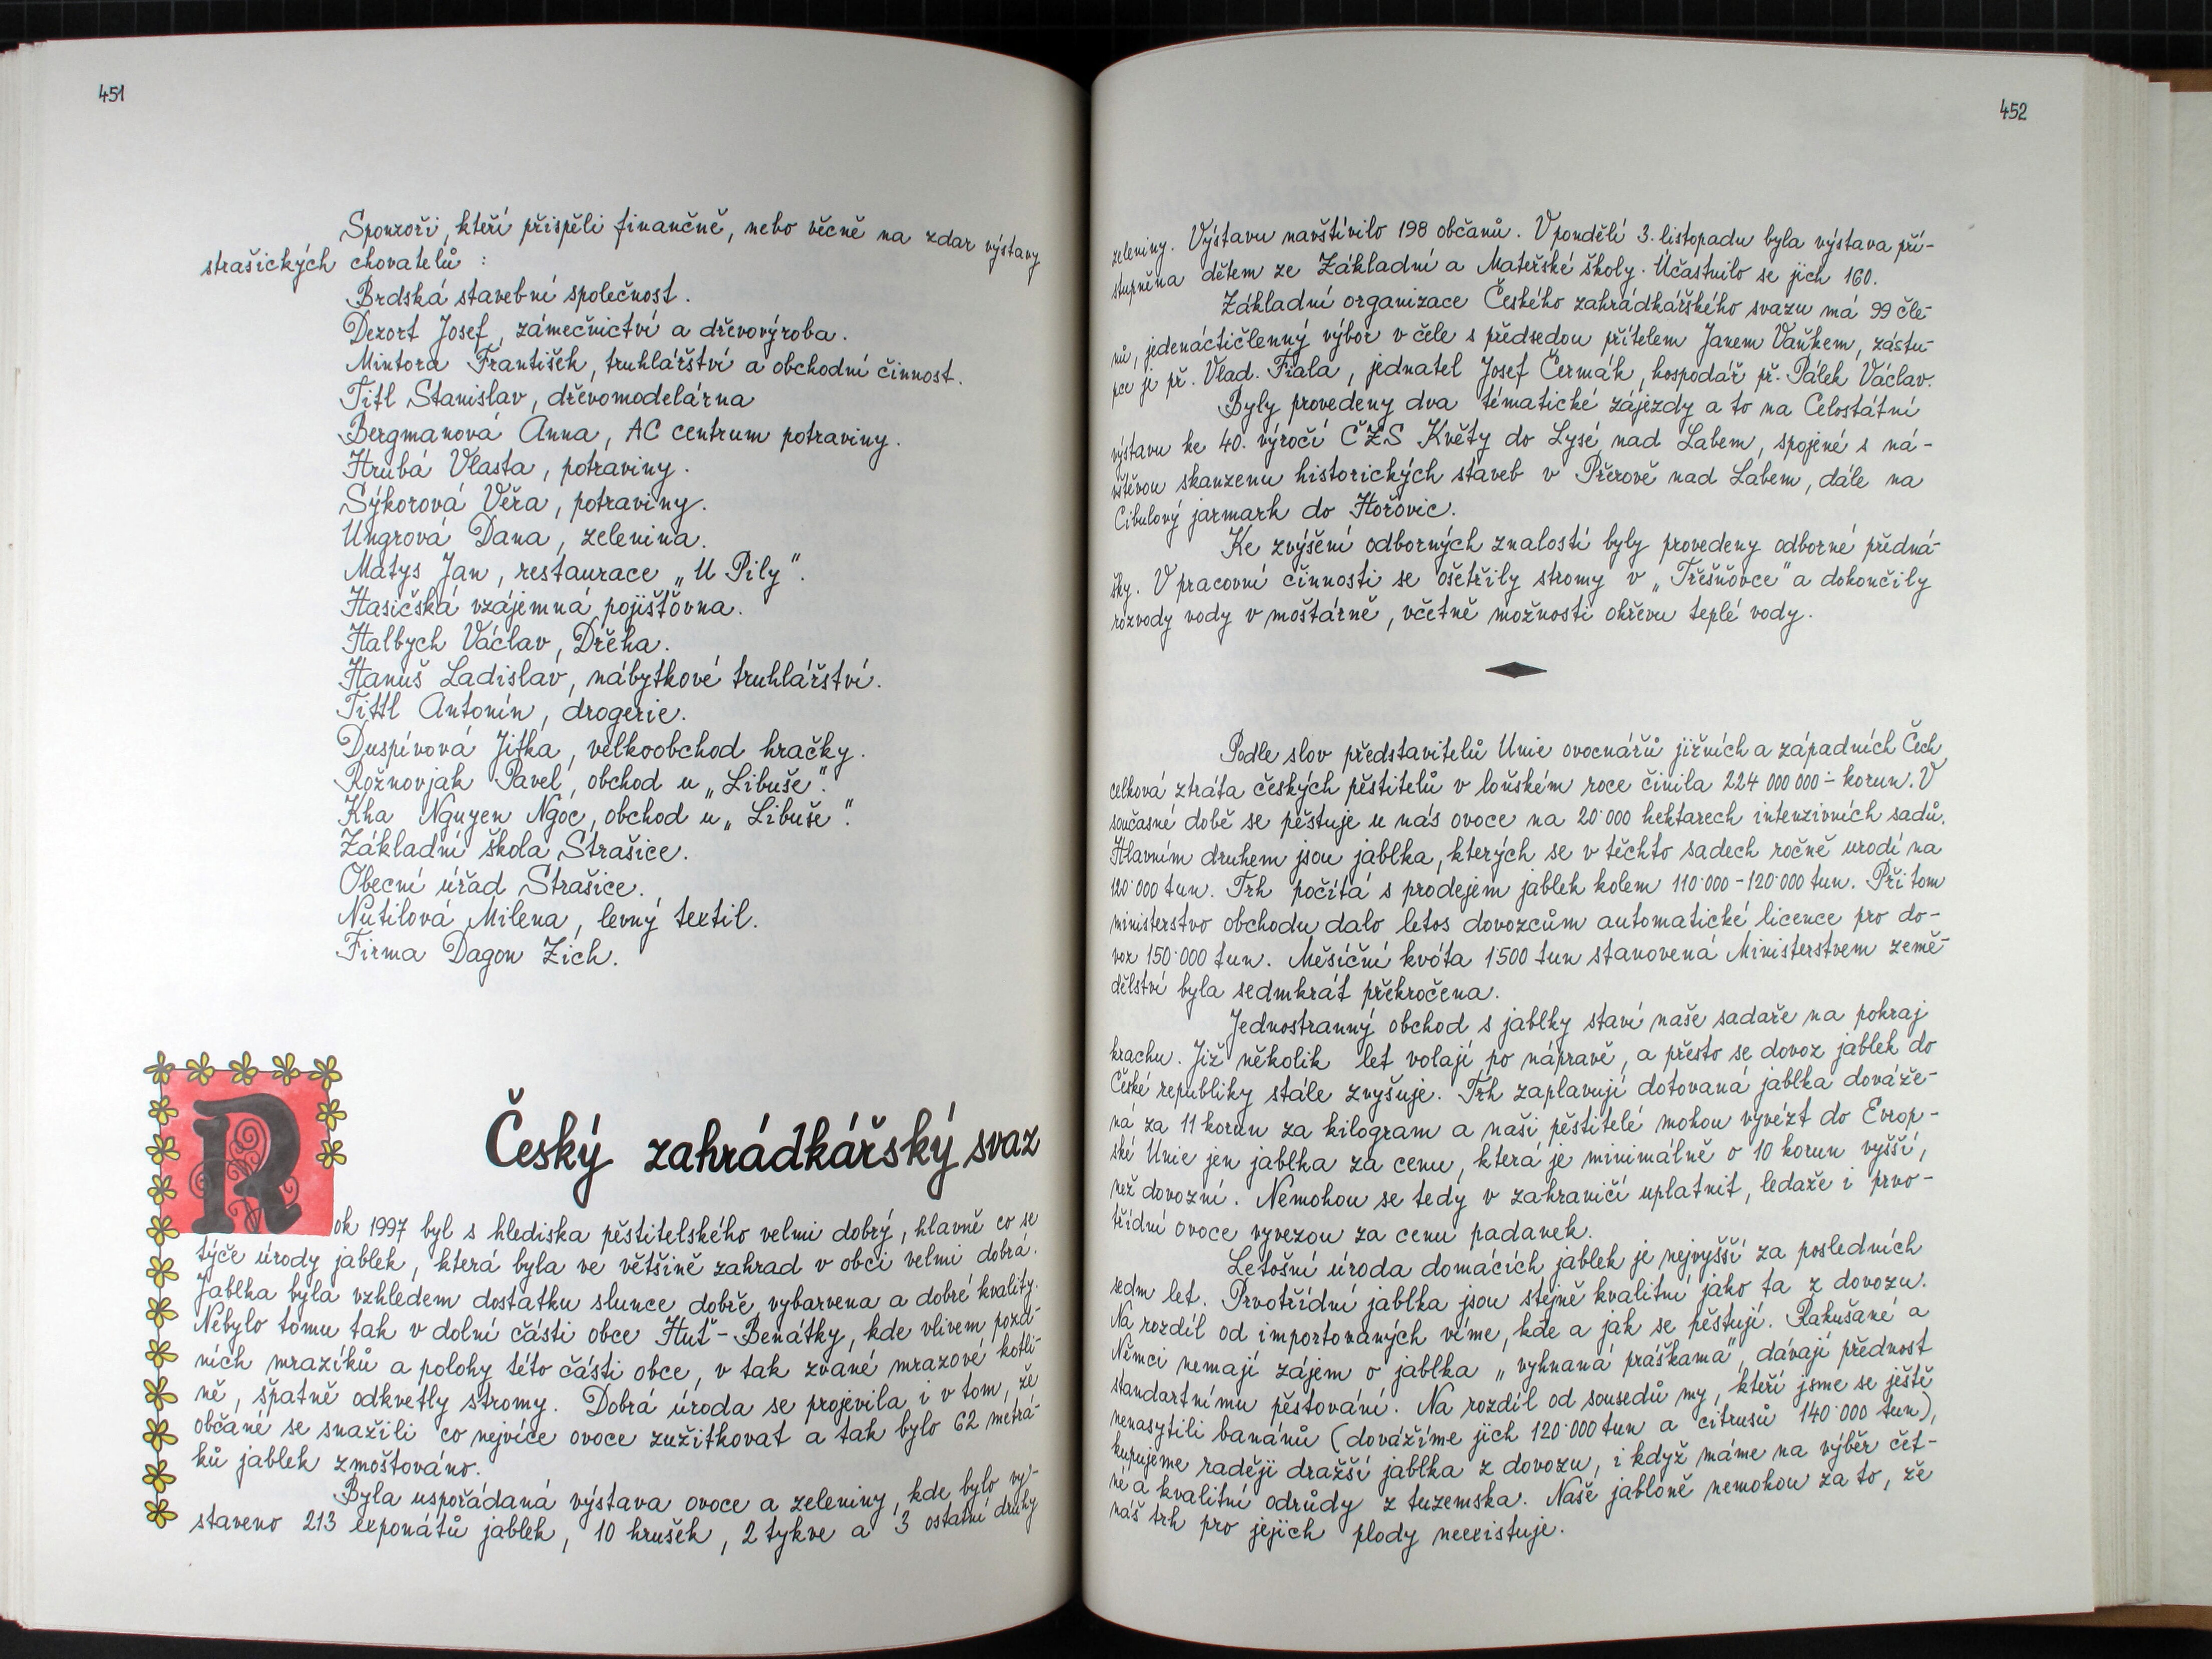 451
Sponzoři, kteří přispěli finančně, nebo věcně na zdar výstavy
strašických chovatelů :
Brdská stavební společnost.
Dezort Josef, zámečnictví a dřevovýroba.
Mintora František, truhlářství a obchodní činnost.
Titl Stanislav, dřevomodelárna
Bergmanová Anna, AC centrum potraviny.
Hrubá Vlasta, potraviny.
Sýkorová Věra, potraviny.
Ungrová Dana, zelenina.
Matys Jan, restaurace „U Pily".
Hasičská vzájemná pojišťovna.
Halbych Václav, Dřeha.
Hanuš Ladislav, nábytkové truhlářství.
Tittl Antonín, drogerie.
Duspivová Jitka, velkoobchod hračky.
Rožnovjak Pavel, obchod u „Libuše".
Kha Nguyen Ngoc, obchod u „Libuše".
Základní škola Strašice.
Obecní úřad Strašice.
Nutilová Milena, levný textil.
Firma Dagon Zich.
Český zahrádkářský svaz
Rok 1997 byl s hlediska pěstitelského velmi dobrý, hlavně co se
týče úrody jablek, která byla ve většině zahrad v obci velmi dobrá.
Jablka byla vzhledem dostatku slunce dobře vybarvena a dobré kvality.
Nebylo tomu tak v dolní části obce Huť - Benátky, kde vlivem pozd-
ních mrazíků a polohy této části obce, v tak zvané mrazové kotli-
ně, špatně odkvetly stromy. Dobrá úroda se projevila i v tom, že
občané se snažili co nejvíce ovoce zužitkovat a tak bylo 62 metrá-
ků jablek zmoštováno.
Byla uspořádaná výstava ovoce a zeleniny, kde bylo vy-
staveno 213 exponátů jablek, 10 hrušek, 2 tykve a 3 ostatní druhy
452
zeleniny. Výstavu navštívilo 198 občanů. V pondělí 3. listopadu byla výstava pří-
stupněna dětem ze Základní a Mateřské školy. Účastnilo se jich 160.
Základní organizace Českého zahrádkářského svazu má 99 čle-
nů, jedenáctičlenný výbor v čele s předsedou přítelem Janem Vaňkem, zástu-
pce je př. Vlad. Fiala, jednatel Josef Čermák, hospodář př. Pálek Václav.
Byly provedeny dva tématické zájezdy a to na Celostátní
výstavu ke 40. výročí ČZS Květy do Lysé nad Labem, spojené s ná-
vštěvou skanzenu historických staveb v Přerově nad Labem, dále na
Cibulový jarmark do Hořovic.
Ke zvýšení odborných znalostí byly provedeny odborné předná-
šky. V pracovní činnosti se ošetřily stromy v „Třešňovce" a dokončily
rozvody vody v moštárně, včetně možnosti ohřevu teplé vody.
Podle slov představitelů Unie ovocnářů jižních a západních Čech
celková ztráta českých pěstitelů v loňském roce činila 224 000 000.- korun. V
současné době se pěstuje u nás ovoce na 20 000 hektarech intenzivních sadů.
Hlavním druhem jsou jablka, kterých se v těchto sadech ročně urodí na
120 000 tun. Trh počítá s prodejem jablek kolem 110 000 - 120 000 tun. Při tom
ministerstvo obchodu dalo letos dovozcům automatické licence pro do-
voz 150 000 tun. Měsíční kvóta 1500 tun stanovená Ministerstvem země-
dělství byla sedmkrát překročena.
Jednostranný obchod s jablky staví naše sadaře na pokraj
krachu. Již několik let volají po nápravě, a přesto se dovoz jablek do
České republiky stále zvyšuje. Trh zaplavují dotovaná jablka dováže-
ná za 11 korun za kilogram a naši pěstitelé mohou vyvézt do Evrop-
ské Unie jen jablka za cenu, která je minimálně o 10 korun vyšší,
než dovozní. Nemohou se tedy v zahraničí uplatnit, ledaže i prvo-
třídní ovoce vyvezou za cenu padanek.
Letošní úroda domácích jablek je nejvyšší za posledních
sedm let. Prvotřídní jablka jsou stejně kvalitní jako ta z dovozu.
Na rozdíl od importovaných víme, kde a jak se pěstují. Rakušané a
Němci nemají zájem o jablka „vyhnaná práškama", dávají přednost
standartnímu pěstování. Na rozdíl od sousedů my, kteří jsme se ještě
nenasytili banánů (dovážíme jich 120 000 tun a citrusů 140 000 tun),
kupujeme raději dražší jablka z dovozu, i když máme na výběr čet-
né a kvalitní odrůdy z tuzemska. Naše jabloně nemohou za to, že
náš trh pro jejich plody neexistuje.